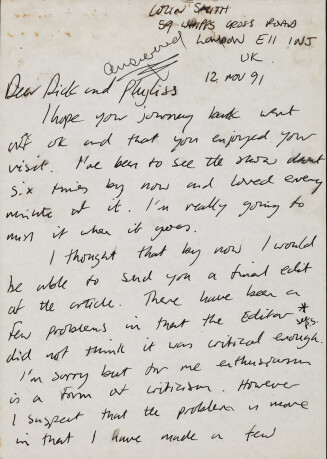 COLIN SMITH
59 WHIPPS CROSS ROAD
LONDON E11 1NJ
UK.
answered
12 NOV 91
Dear Dick and Phyliss
I hope your journey back went
off ok and that you enjoyed your
visit. I've been to see the show about
six times by now and loved every
minute of it. I'm really going to
miss it when it goes.
I thought that by now I would
be able to send you a final edit
of the article. There have been a
few problems in that the Editor *
did not think it was critical enough.
I'm sorry but for me enthusiasm
is a form of criticism. However
I suspect that the problem is more
in that I have made a few